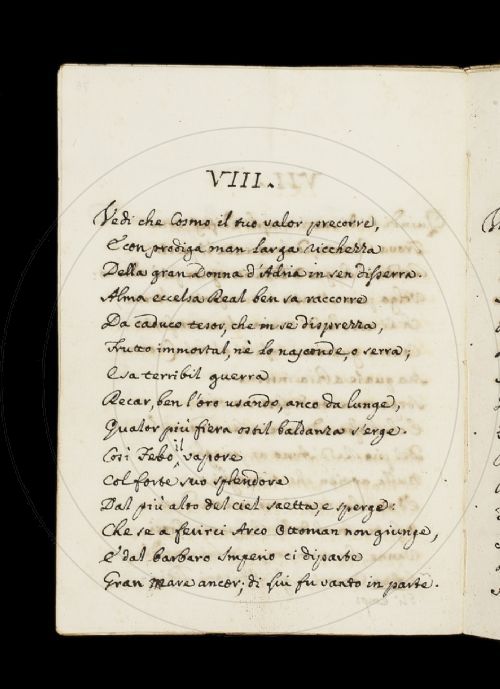 VIII.
Vedi che Cosmo il tuo valor precorre,
E con prodiga man larga ricchezza
Della gran Donna d'Adria in sen disserra.
Alma eccelsa Real ben sa raccorre
Da caduco tesor, che in se disprezza,
Frutto immortal, nè lo nasconde, o serra;
E sa terribil guerra
Recar, ben l'oro usando, anco da lunge,
Qualor più fiera ostil baldanza s'erge.
Così Febo il vapore
Col forte suo splendore
Dal più alto del ciel saetta, e sperge.
Che se a ferirci Arco Ottoman non giunge,
E dal barbaro Imperio ci diparte
Gran Mare ancor; di lui fu vanto in parte.